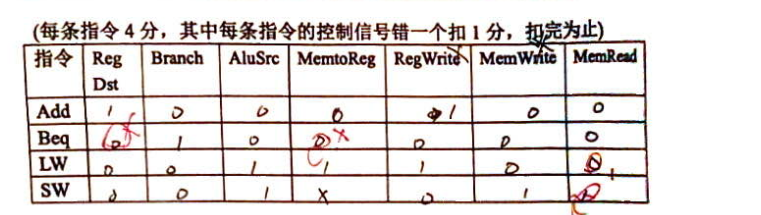 (每条指令 4 分，其中每条指令的控制信号错一个扣 1 分，扣完为止)
指令 Reg Dst Branch AluSrc MemtoReg RegWrite MemWrite MemRead
Add 1 0 0 0 1 0 0
Beq 0 x 1 0 0 x 0 0 0
LW 0 0 1 1 1 0
SW 0 0 1 x 0 1